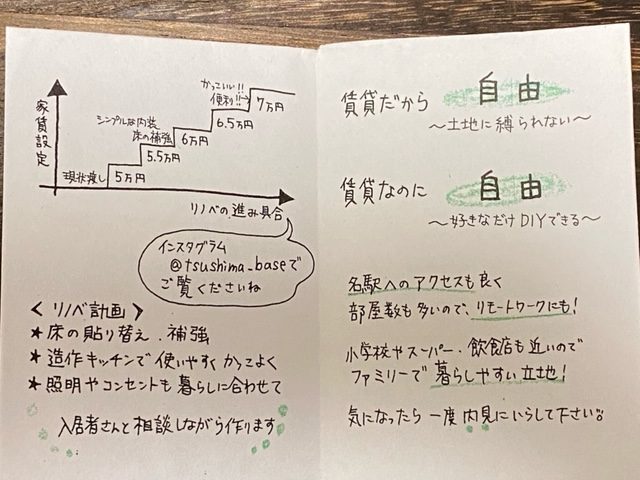 家賃設定
かっこいい!!
便利!!→
7万円
6.5万円
シンプルな内装
床の補強
6万円
5.5万円
現状渡し
5万円
リノベの進み具合
インスタグラム
@tsushima_baseで
ご覧くださいね
< リノベ計画 >
★床の貼り替え、補強
★造作キッチンで使いやすくかっこよく
★照明やコンセントも暮らしに合わせて
入居者さんと相談しながら作ります
賃貸だから 自由
～土地に縛られない～
賃貸なのに 自由
～好きなだけDIYできる～
名駅へのアクセスも良く
部屋数も多いので、リモートワークにも!
小学校やスーパー、飲食店も近いので
ファミリーで暮らしやすい立地!
気になったら一度内見にいらして下さい。